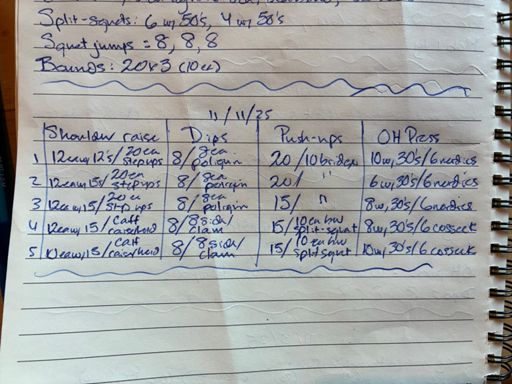 Split-squats: 6 w, 50's, 4 w, 50's
Squat jumps = 8, 8, 8
Bounds: 20 x 3 (10 ea)
11/11/25
Shoulder raise | Dips | Push-ups | OH Press
1 12ea w, 12's/20ea step ups | 8/8ea poliquin | 20/10 bridges | 10 w, 30's/6 nordics
2 12ea w, 15's/20ea step ups | 8/8ea poliquin | 20/ " | 6 w, 30's/6 nordics
3 12ea w, 15/20ea step ups | 8/8ea poliquin | 15/ " | 8 w, 30's/6 nordics
4 12ea w, 15/calf raise/hold | 8/8 side/clam | 15/10 ea bw split-squat | 8 w, 30's/6 cossack
5 10ea w, 15/calf raise/hold | 8/8 side/clam | 15/10 ea bw split squat | 10 w, 30's/6 cossack